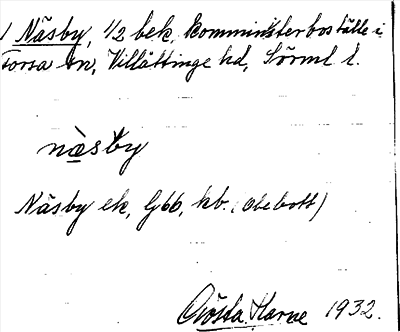 1 Näsby, 1/2 bek. komministerboställe i
Forsa sn, Villåttinge hd, Sörml l.
näsby
Näsby ek, Gbb, kb. (obebott)
Gösta Karne 1932.